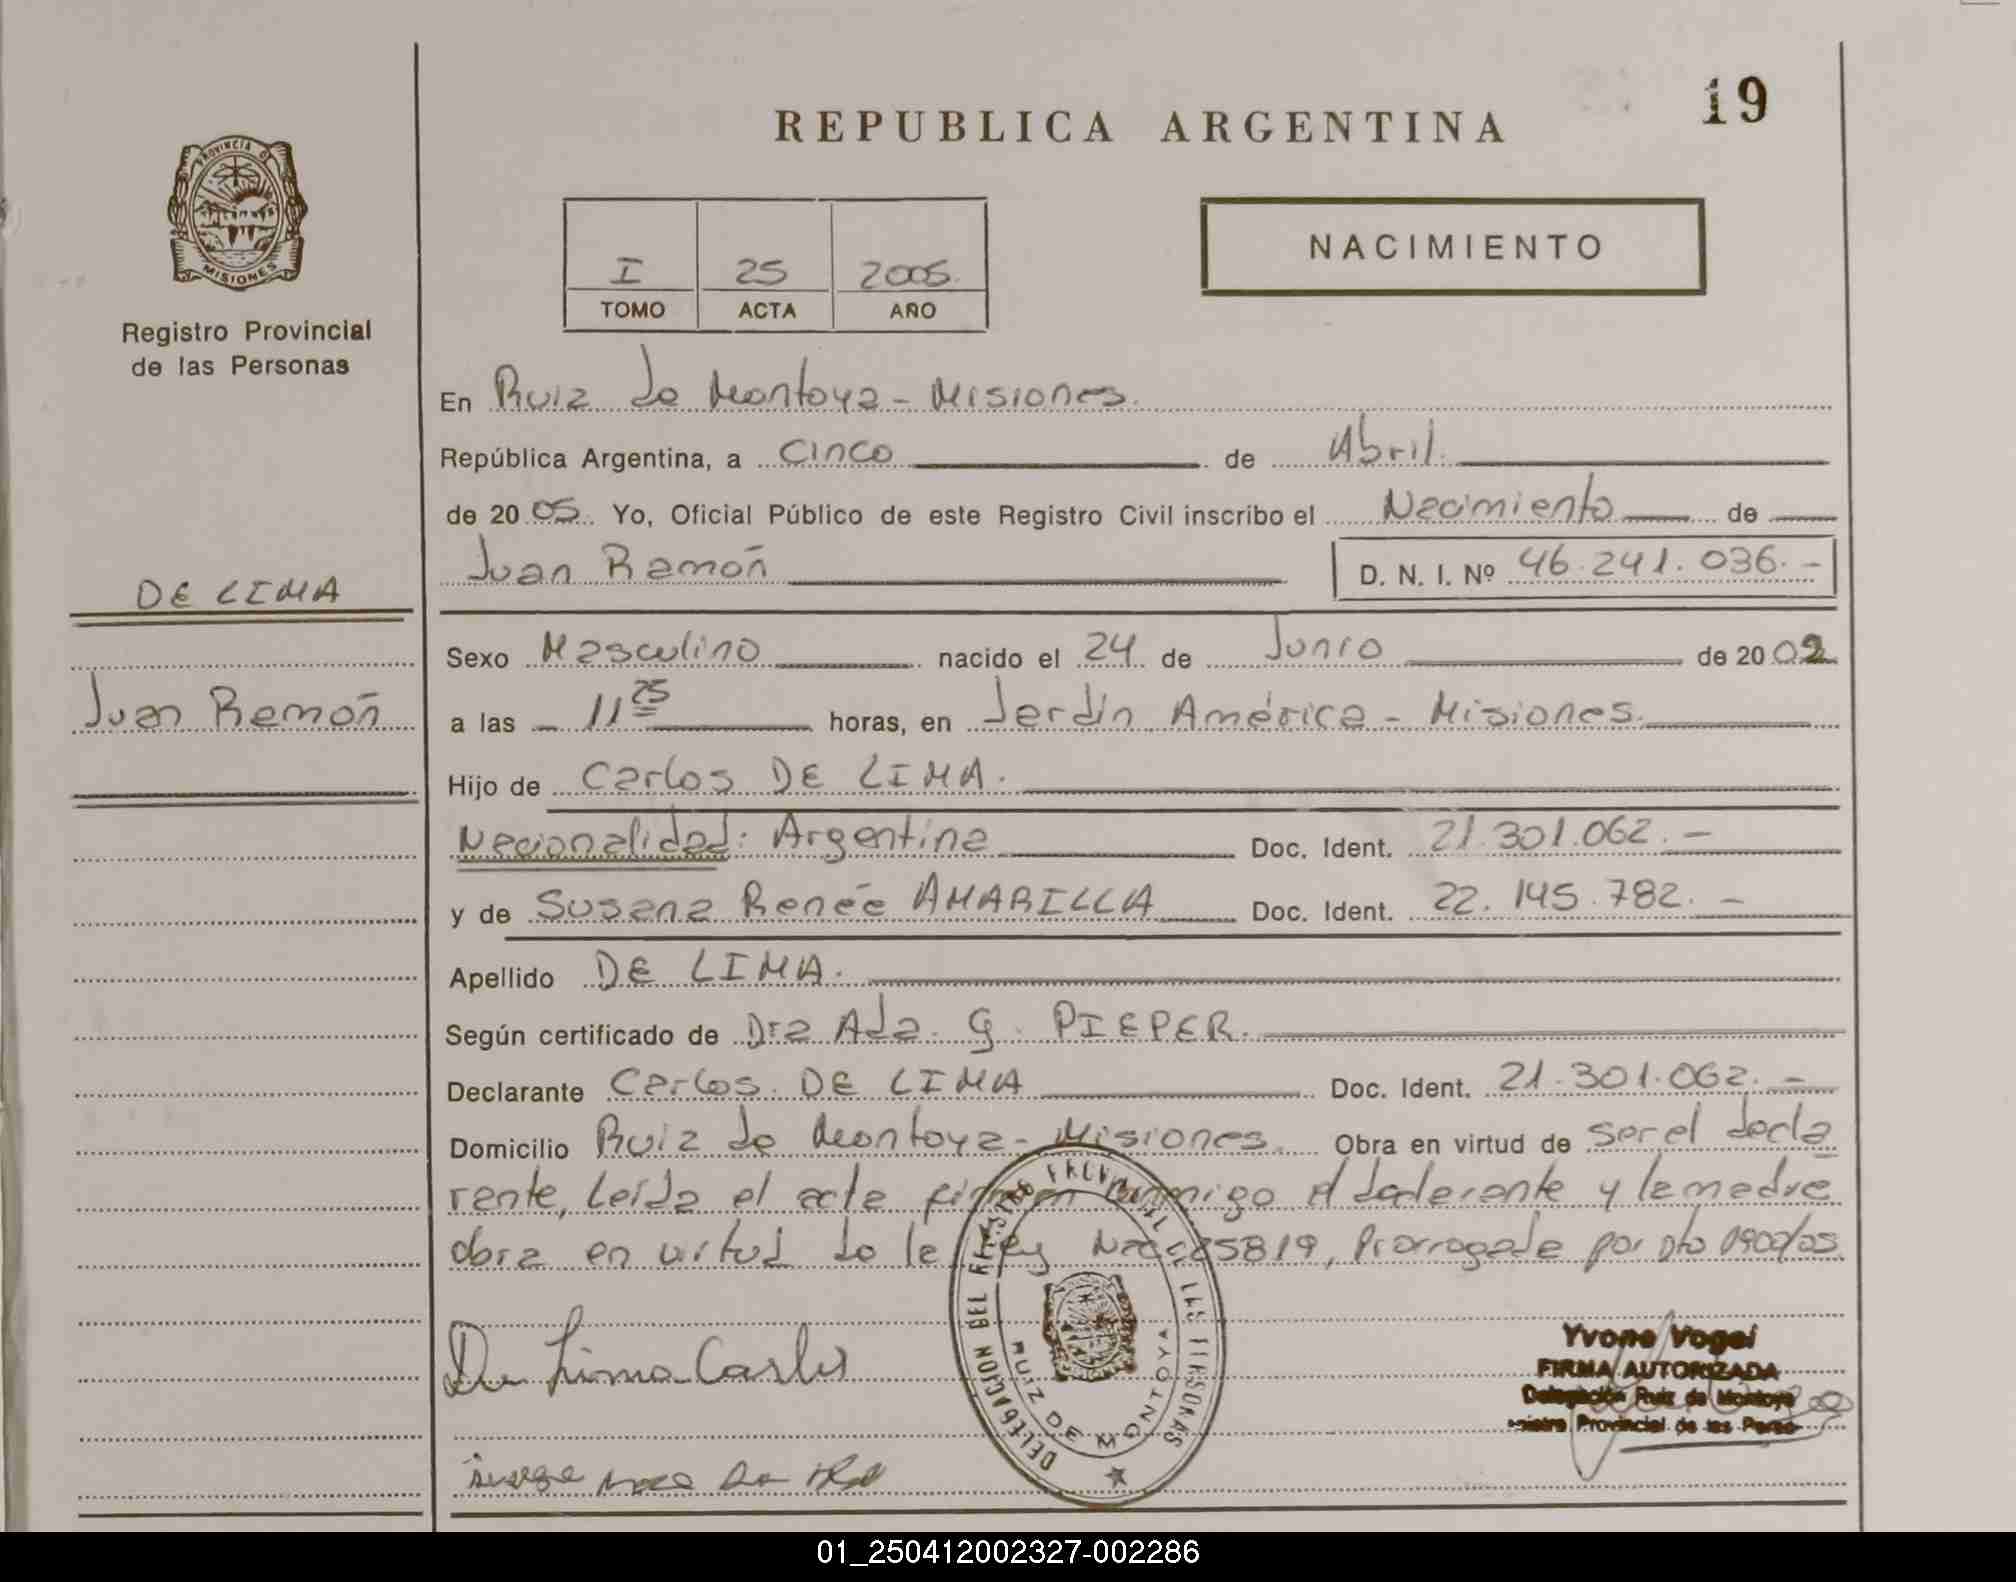 19
REPUBLICA ARGENTINA
PROVINCIA DE
MISIONES
Registro Provincial
de las Personas
I 25 2005.
TOMO ACTA AÑO
NACIMIENTO
En Ruiz de Montoya - Misiones.
República Argentina, a cinco de Abril.
de 2005. Yo, Oficial Público de este Registro Civil inscribo el Nacimiento de
Juan Ramón D. N. I. Nº 46.241.036.-
DE LIMA
Juan Ramón
Sexo Masculino nacido el 24 de Junio de 2002
a las - 11 25 horas, en Jardín América - Misiones.
Hijo de Carlos DE LIMA.
Nacionalidad: Argentina Doc. Ident. 21.301.062.-
y de Susana Renée AMARILLA Doc. Ident. 22.145.782.-
Apellido DE LIMA.
Según certificado de Dra Ada. G. PIEPER.
Declarante Carlos. DE LIMA Doc. Ident. 21.301.062.-
Domicilio Ruiz de Montoya - Misiones. Obra en virtud de ser el decla
rante, leída el acta firman conmigo el declarante y la madre
obra en virtud de la ley Nac 25819, Prorrogada por Dto 1900/05
De Lima Carlos
DELEGACION DEL REGISTRO PROVINCIAL DE LAS PERSONAS
RUIZ DE MONTOYA
Yvone Vogel
FIRMA AUTORIZADA
Delegación Ruiz de Montoya
Provincial de las
01_250412002327-002286